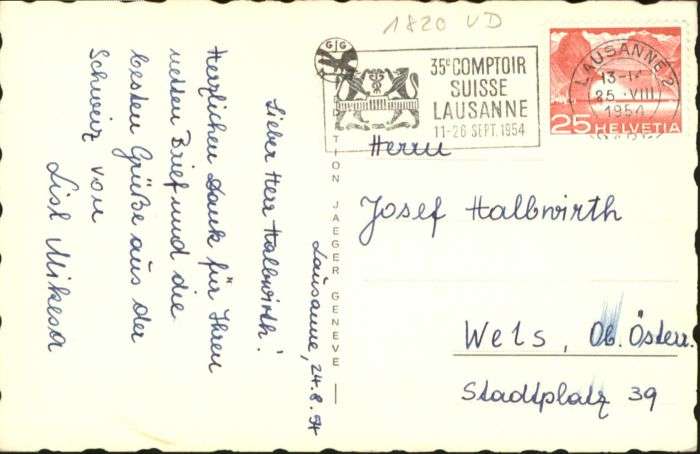 1820 VD
G G
35e COMPTOIR
SUISSE
LAUSANNE
11-26 SEPT. 1954
LAUSANNE 2
25 VIII
1954
25 HELVETIA
Lausanne, 24.8.54
Lieber Herr Halbwirth!
Herzlichen Dank für Ihren
netten Brief und die
besten Grüße aus der
Schweiz von
Lisl Mikesa
JAEGER GENEVE
Herrn
Josef Halbwirth
Wels, Ob. Österr.
Stadtplatz 39